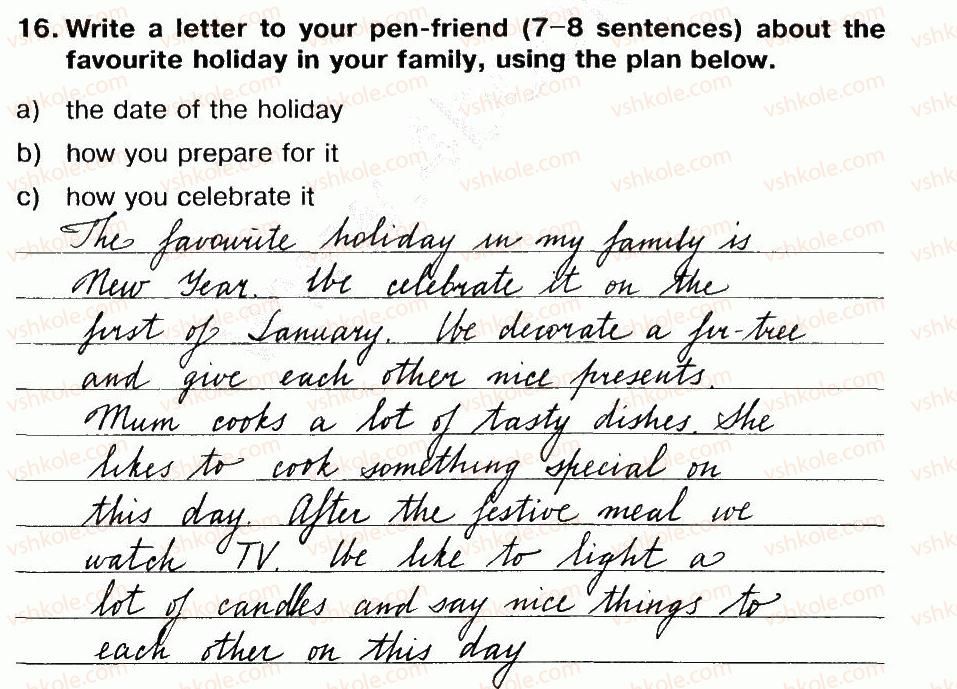 16. Write a letter to your pen-friend (7–8 sentences) about the
favourite holiday in your family, using the plan below.
a) the date of the holiday
b) how you prepare for it
c) how you celebrate it
The favourite holiday in my family is
New Year. We celebrate it on the
first of January. We decorate a fir-tree
and give each other nice presents.
Mum cooks a lot of tasty dishes. She
likes to cook something special on
this day. After the festive meal we
watch TV. We like to light a
lot of candles and say nice things to
each other on this day
vshkole.com